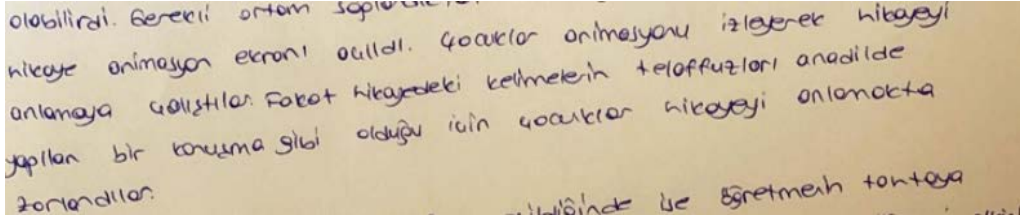 olabilirdi. Gerekli ortam
hikaye animasyon ekranı açıldı. Çocuklar animasyonu izleyerek hikayeyi
anlamaya çalıştılar. Fakat hikayedeki kelimelerin telaffuzları anadilde
yapılan bir konuşma gibi olduğu için çocuklar hikayeyi anlamakta
zorlandılar.
ise öğretmenin tahtaya